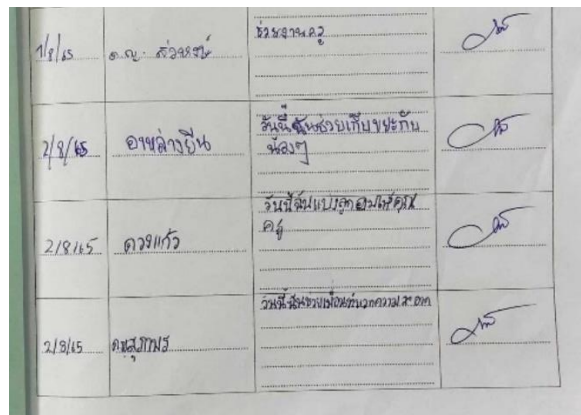 1/8/65 ด.ญ. ช่วยงานครู
2/8/65 อาหล่างยืน วันนี้ฉันช่วยเก็บขยะกับ
น้องๆ
2/8/65 ดวงแก้ว วันนี้ฉันแบ่งลูกอมให้คุณ
ครู
2/8/65 สุภาพร วันนี้ฉันช่วยเพื่อนทำความสะอาด